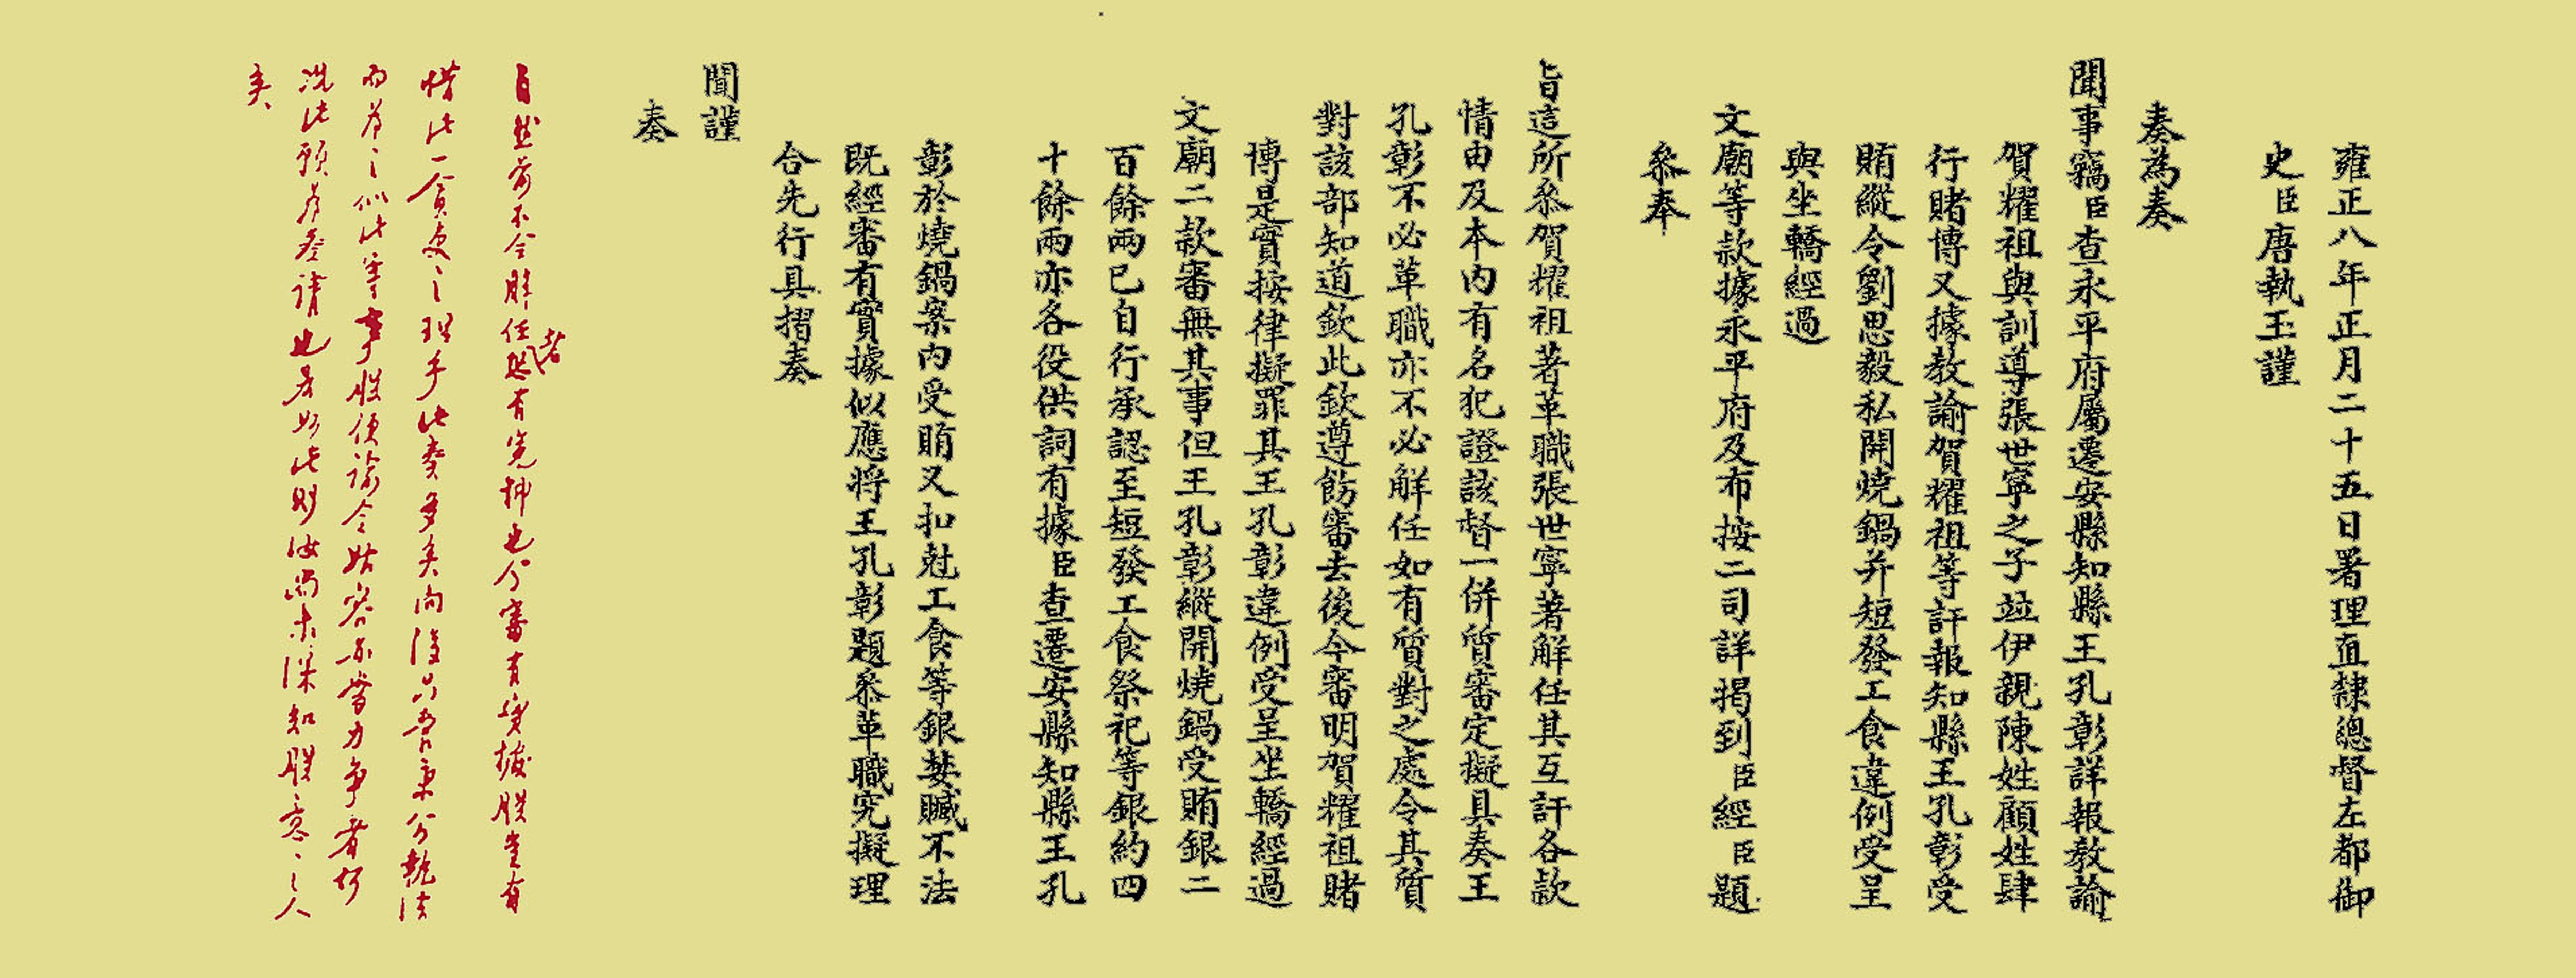 雍正八年正月二十五日署理直隸總督左都御
史臣唐執玉謹
奏為奏
聞事竊臣查永平府屬遷安縣知縣王孔彰詳報教諭
賀耀祖與訓導張世寧之子並伊親陳姓顧姓肆
行賭博又據教諭賀耀祖等訐報知縣王孔彰受
賄縱令劉思毅私開燒鍋并短發工食違例受呈
與坐轎經過
文廟等款據永平府及布按二司詳揭到臣經臣題
叅奉
旨這所叅賀耀祖著革職張世寧著解任其互訐各款
情由及本內有名犯證該督一併質審定擬具奏王
孔彰不必革職亦不必解任如有質對之處令其質
對該部知道欽此欽遵飭審去後今審明賀耀祖賭
博是實按律擬罪其王孔彰違例受呈坐轎經過
文廟二款審無其事但王孔彰縱開燒鍋受賄銀二
百餘兩已自行承認至短發工食祭祀等銀約四
十餘兩亦各役供詞有據臣查遷安縣知縣王孔
彰於燒鍋案內受賄又扣尅工食等銀婪贓不法
既經審有實據似應將王孔彰題叅革職究擬理
合先行具摺奏
聞謹
奏
自然前不令解任者與有冤抑也今審有實據朕豈有
惜此一貪吏之理乎此奏多矣向後只吾秉公執法
而為之似此等事朕便諭令姑容亦當力爭者何
況此預為奏請也若如此則汝尚未深知朕意之人
矣